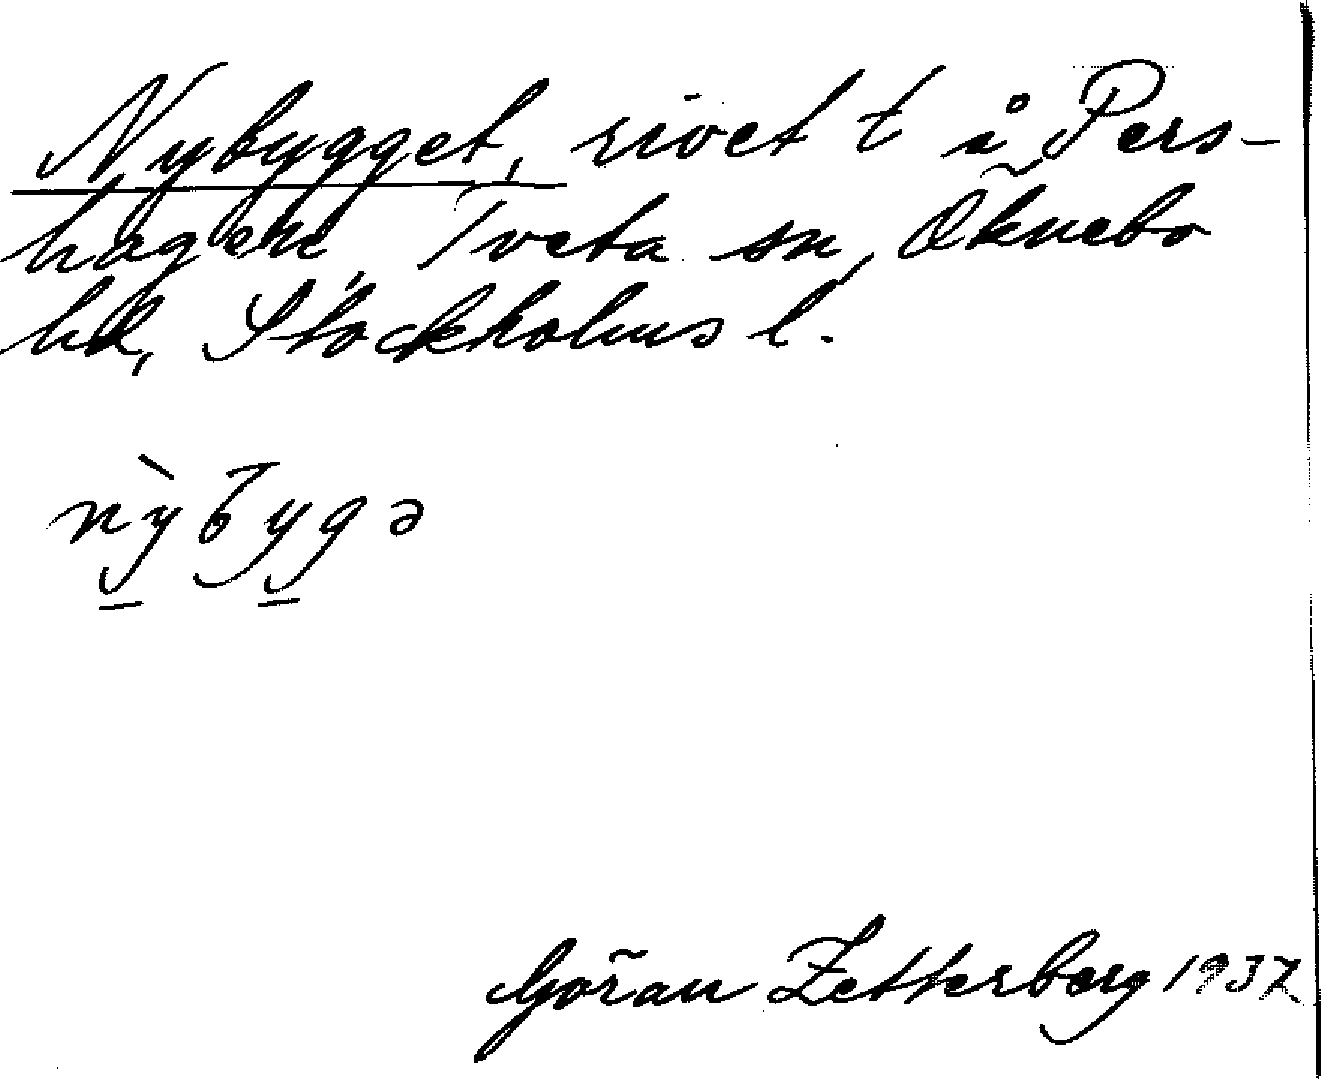 Nybygget, rivet t å Pers-
hagen, Tveta sn, Öknebo
hd, Stockholms l.
nỳbygə
Göran Zetterberg 1937